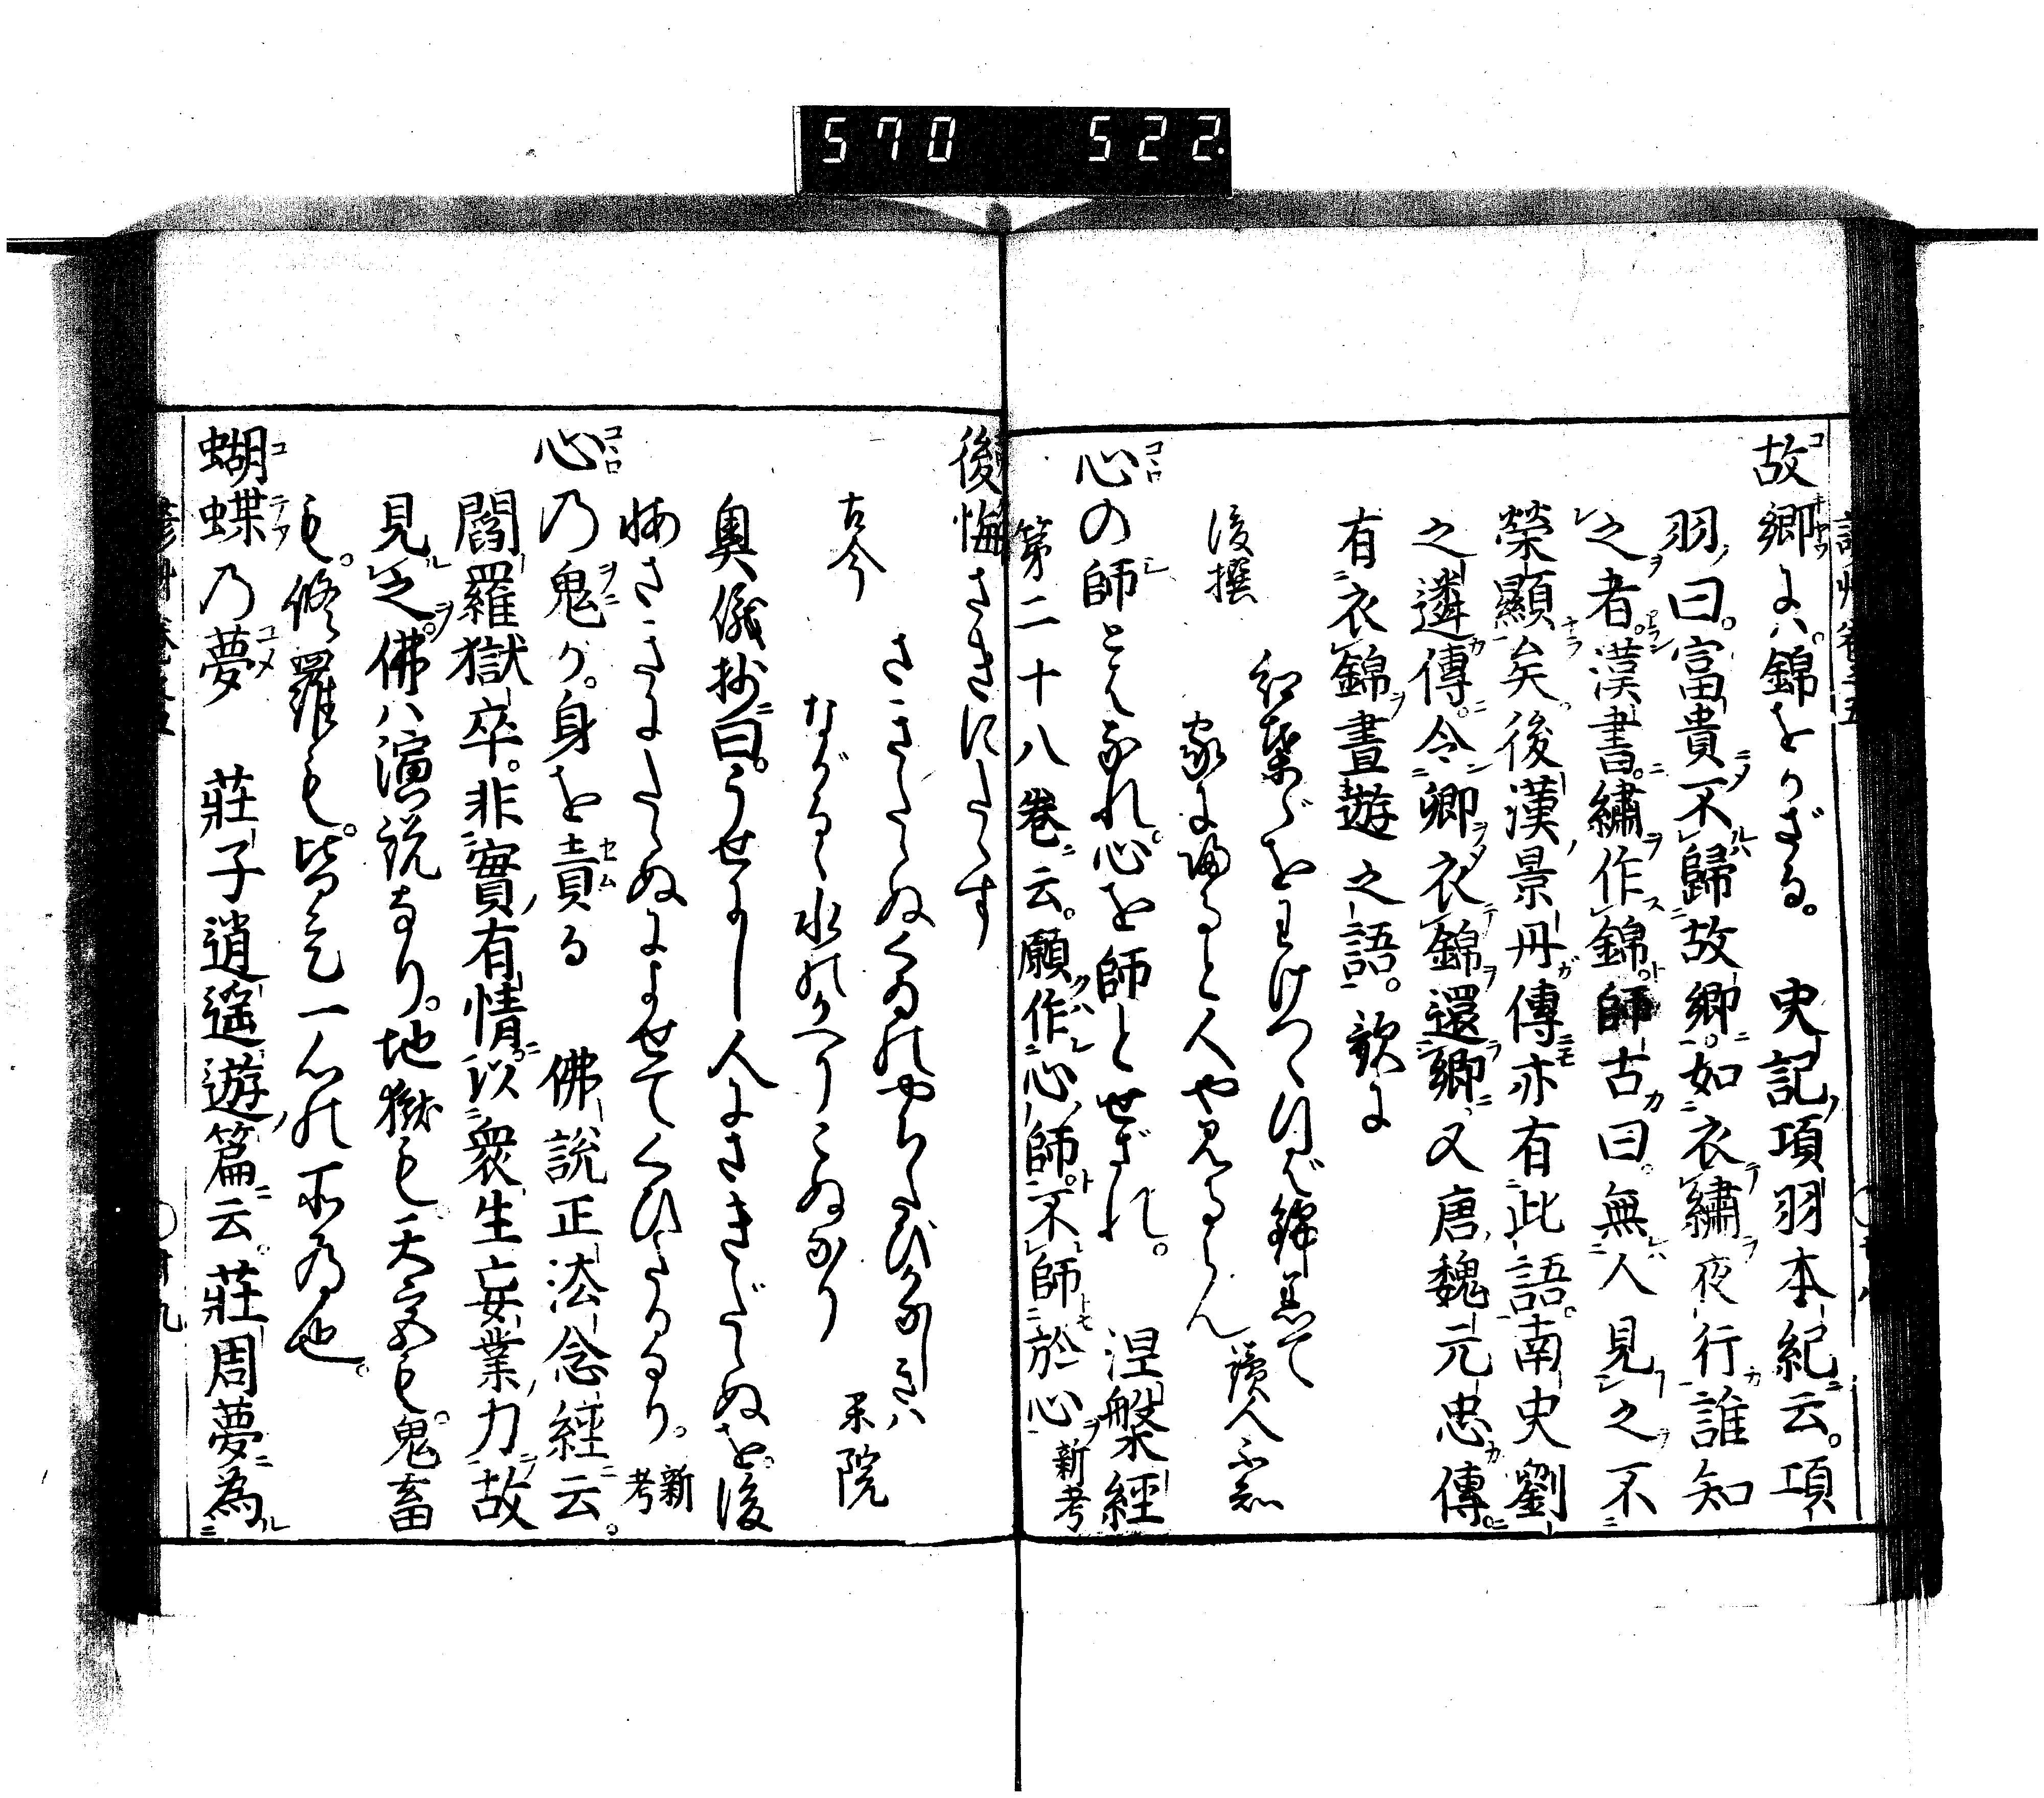 570 522.
故郷には。錦をかざる。 史記項羽本紀云。項
羽曰。富貴不歸故郷。如衣繡夜行誰知
之者。漢書。繡作錦。師古曰。無人見之不
榮顯矣。後漢景丹傳亦有此語。南史劉
之遴傳。令卿衣錦還郷。又唐魏元忠傳。
有衣錦晝遊之語。歌に
後撰 紅葉ばをわけつゝ行ば錦著て 讀人不知
家に歸ると人や見るらん
心の師とはなれ。心を師とせざれ。 涅槃經
第二十八巻云。願作心師。不師於心 新考
後悔さきにたゝず
古今 さきだゝぬくゐのやちたびかなしきは 閑院
ながるゝ水のかへりこぬなり
奥儀抄曰。うせにし人にさきだゝぬを。後
悔さきにたゝぬによせてくひたるなり。 新考
心乃鬼が。身を責る 佛説正法念經云。
閻羅獄卒。非實有情。以衆生妄業力故
見之。佛ハ演説なり。地獄も。天宮も。鬼畜
も。修羅も。皆是一心の所為也。
蝴蝶乃夢 莊子逍遥遊篇云。莊周夢為